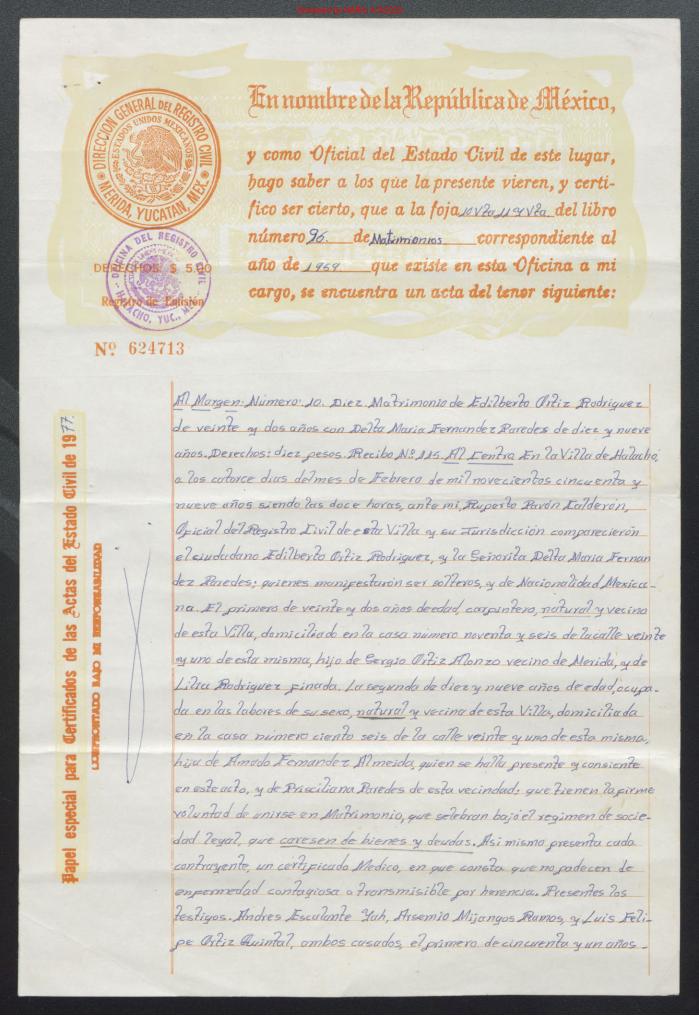 DIRECCION GENERAL DEL REGISTRO CIVIL
ESTADOS UNIDOS MEXICANOS
MERIDA, YUCATAN, MEX.
En nombre de la República de México,
y como Oficial del Estado Civil de este lugar,
hago saber a los que la presente vieren, y certi-
fico ser cierto, que a la foja 10 Vta, 11 y Vta del libro
número 96. de Matrimonios correspondiente al
año de 1959 que existe en esta Oficina a mi
cargo, se encuentra un acta del tenor siguiente:
OFICINA DEL REGISTRO CIVIL
HALACHO, YUC., MEX.
DERECHOS $ 5.00
Registro de Emisión
Nº 624713
Papel especial para Certificados de las Actas del Estado Civil de 1977.
BAJO MI RESPONSABILIDAD
Al Margen: Número: 10. Diez. Matrimonio de Edilberto Ortiz Rodriguez
de veinte y dos años con Delta Maria Fernandez Paredes de diez y nueve
años. Derechos: diez pesos. Recibo Nº 115. Al Centro En la Villa de Halachó,
a los catorce dias del mes de Febrero de mil novecientos cincuenta y
nueve años siendo las doce horas, ante mi, Ruperto Pavón Calderón,
Oficial del Registro Civil de esta Villa y su Jurisdicción comparecierón
el ciudadano Edilberto Ortiz Rodriguez, y la Señorita Delta Maria Fernan
dez Paredes; quienes manifestarón ser solteros, y de Nacionalidad Mexica-
na. El primero de veinte y dos años de edad, carpintero, natural y vecino
de esta Villa, domiciliado en la casa número noventa y seis de la calle veinte
y uno de esta misma, hijo de Sergio Ortiz Alonzo vecino de Merida, y de
Lilia Rodriguez finada. La segunda de diez y nueve años de edad, ocupa-
da en las labores de su sexo, natural y vecina de esta Villa, domiciliada
en la casa número ciento seis de la calle veinte y uno de esta misma,
hija de Amado Fernandez Almeida, quien se halla presente y consiente
en este acto, y de Prisciliana Paredes de esta vecindad; que tienen la firme
voluntad de unirse en Matrimonio, que selebran bajo el regimen de socie-
dad legal, que caresen de bienes y deudas. Asi mismo presenta cada
contrayente, un certificado Medico, en que consta que no padecen de
enfermedad contagiosa o transmisible por herencia. Presentes los
testigos. Andres Escalante Yah, Arsemio Mijangos Ramos, y Luis Feli-
pe Ortiz Quintal, ambos casados, el primero de cincuenta y un años -